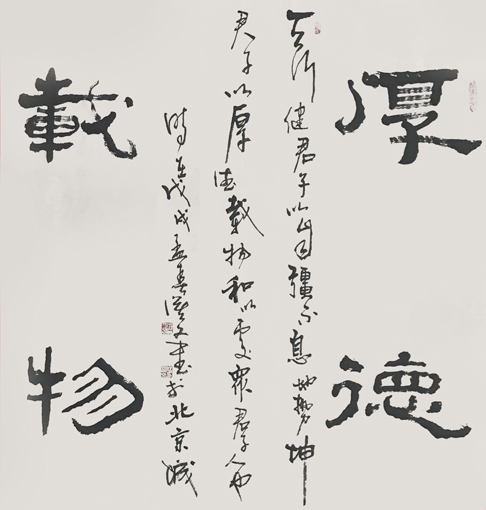 厚德
天行健君子以自強不息地勢坤
君子以厚德載物和以處眾君子人也
時在戊戌孟春漢文書於北京城
載物